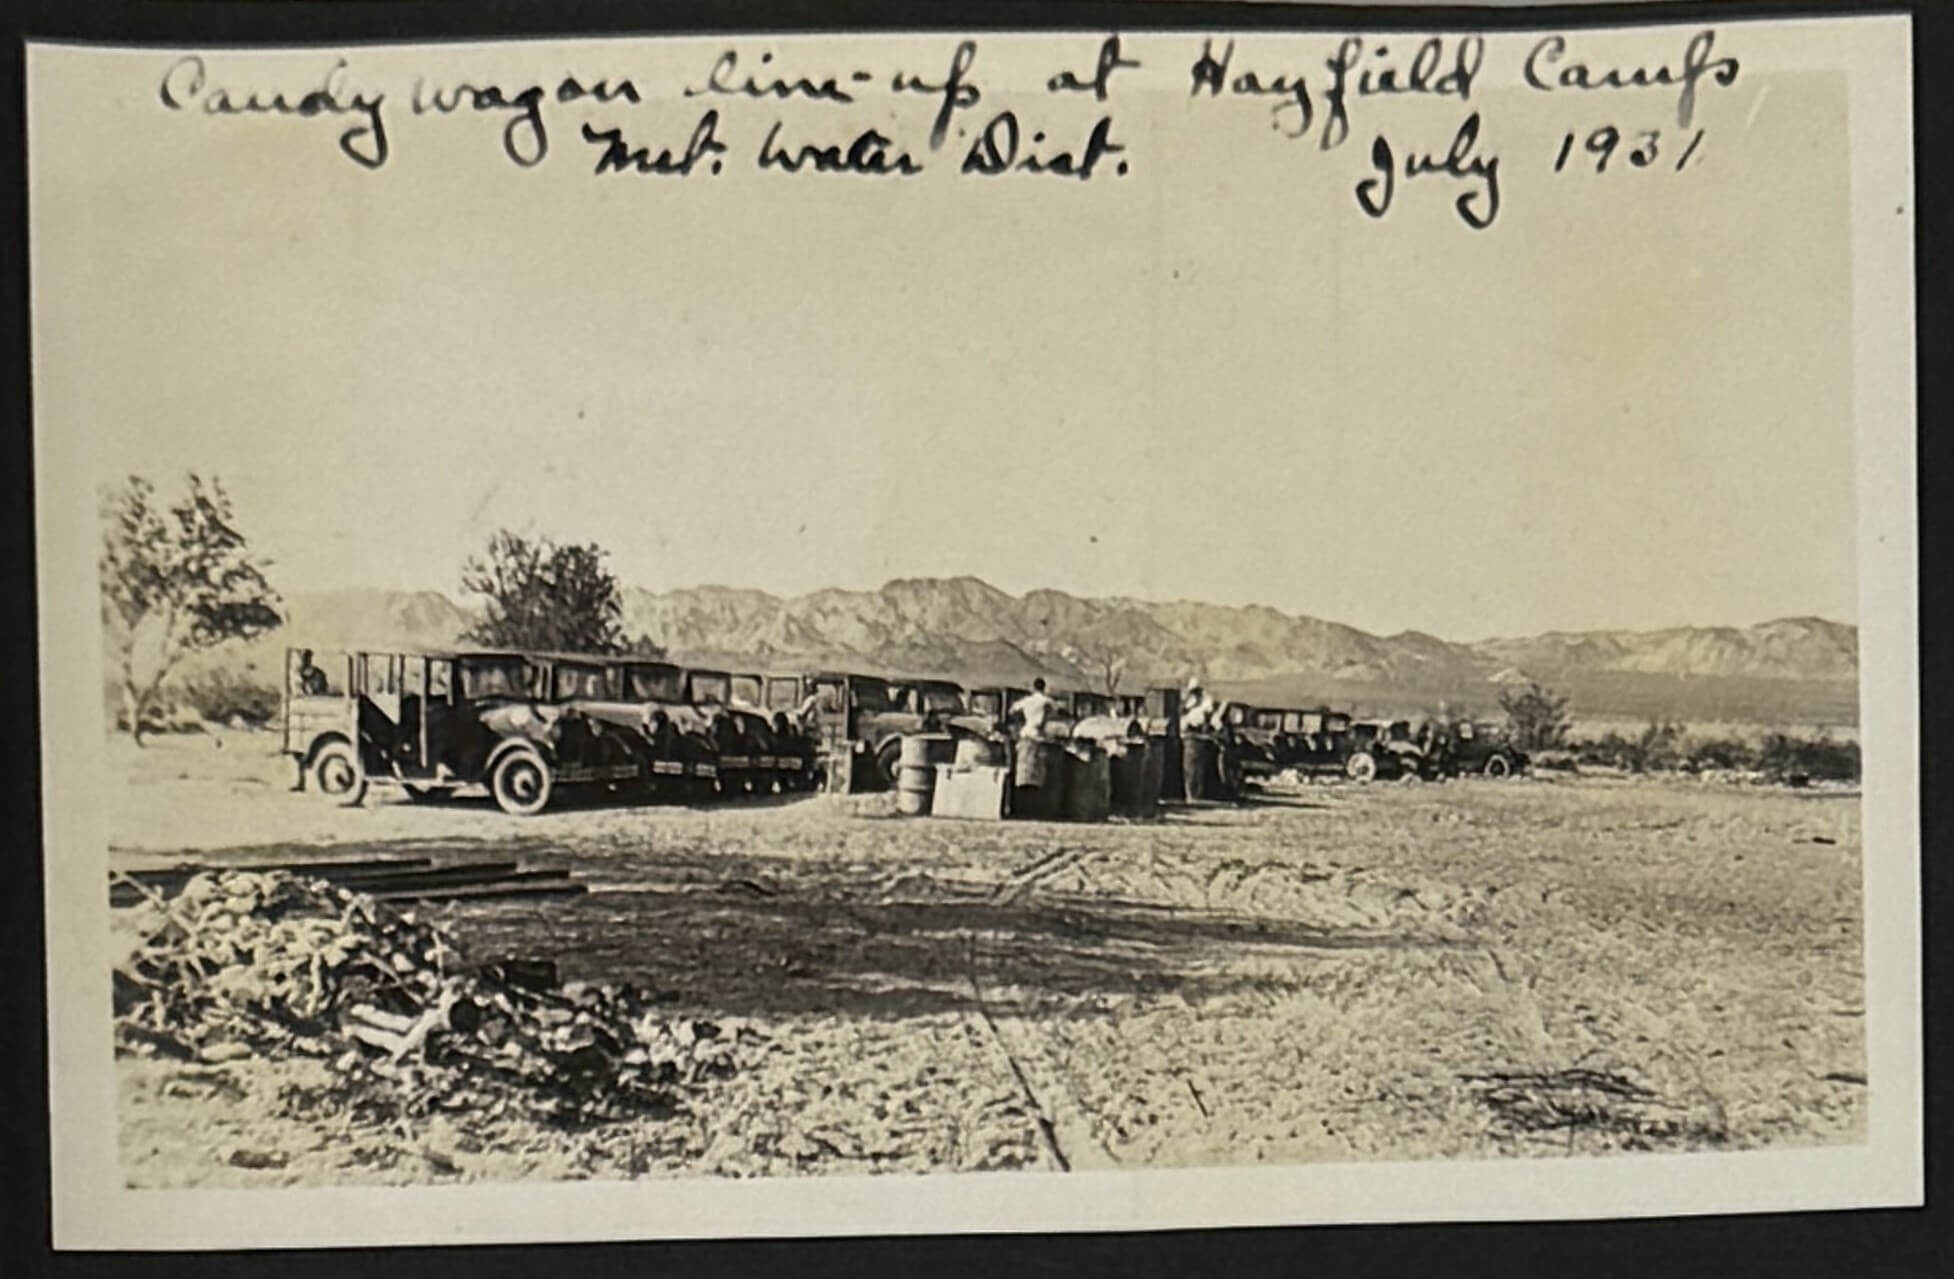 Candy wagon line-up at Hayfield Camp
Met. Water Dist. July 1931